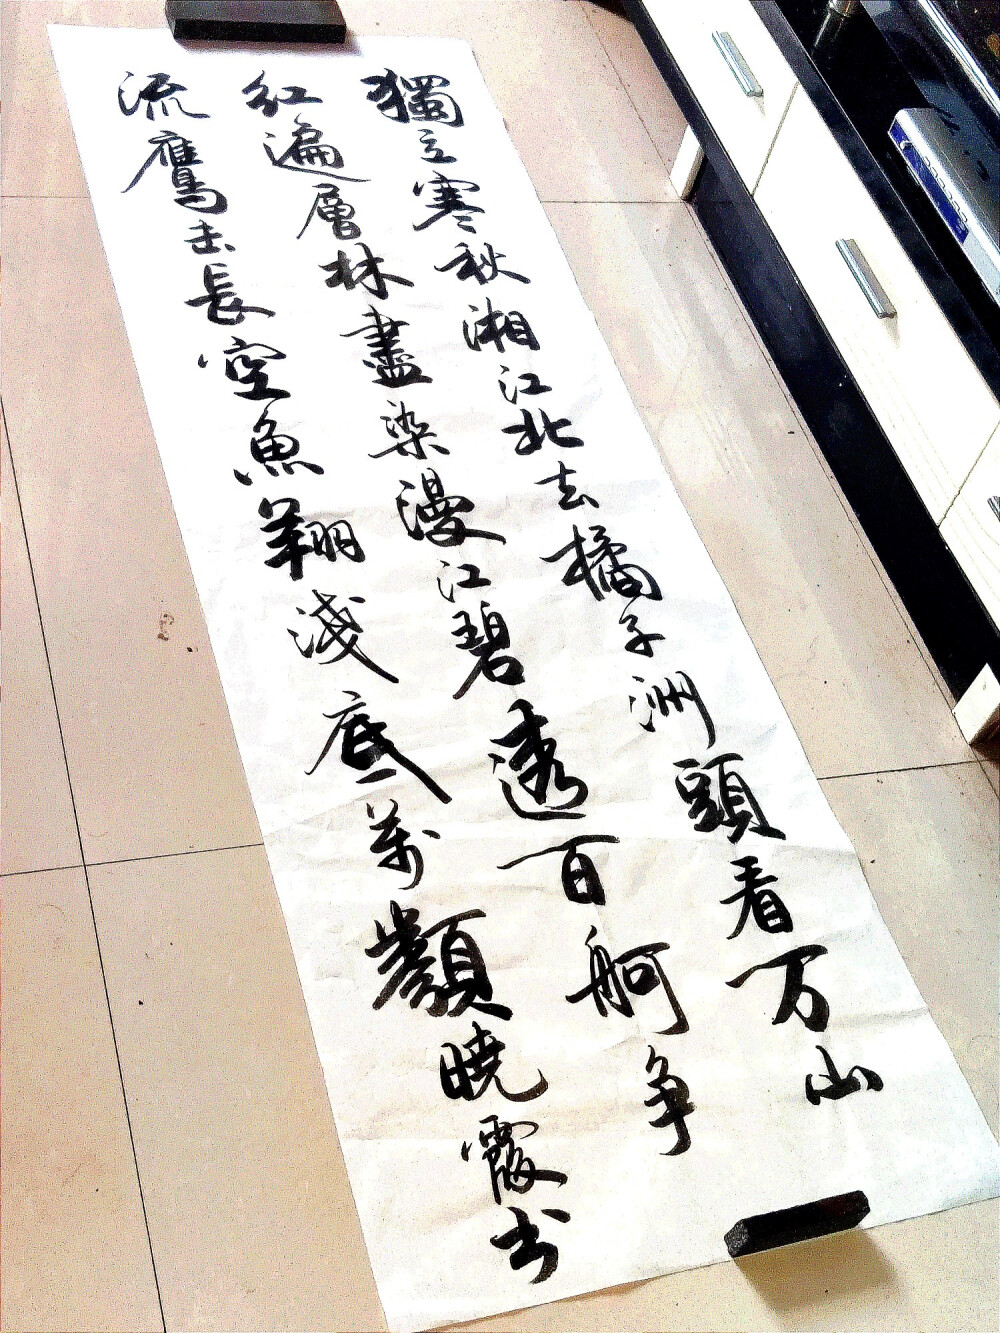 獨立寒秋湘江北去橘子洲頭看万山
红遍層林盡染漫江碧透百舸争
流鷹击長空魚翔淺底万顥曉霞书